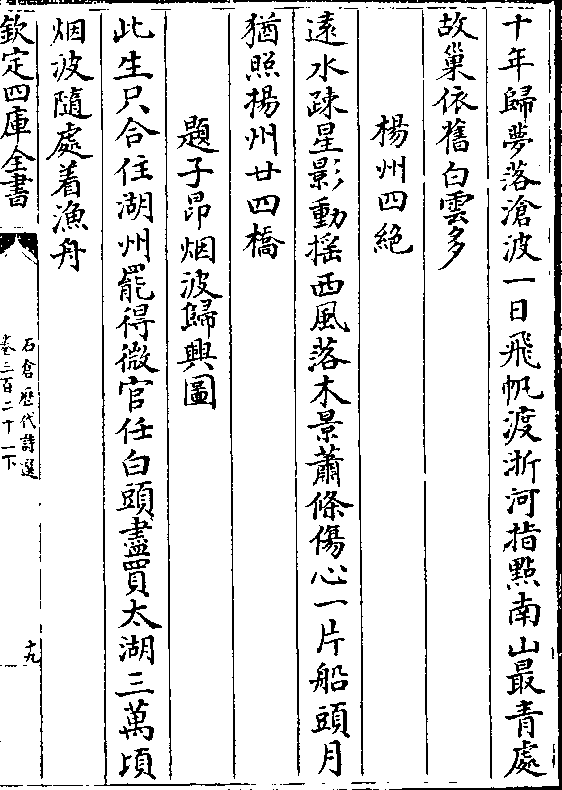 十年歸夢落滄波一日飛帆渡浙河指點南山最青處
故巢依舊白雲多
楊州四絶
遠水疎星影動摇西風落木景蕭條傷心一片船頭月
猶照楊州廿四橋
題子昂烟波歸興圖
此生只合住湖州罷得微官任白頭盡買太湖三萬頃
烟波隨處着漁舟
欽定四庫全書
石倉歷代詩選
卷三百二十一下
十九